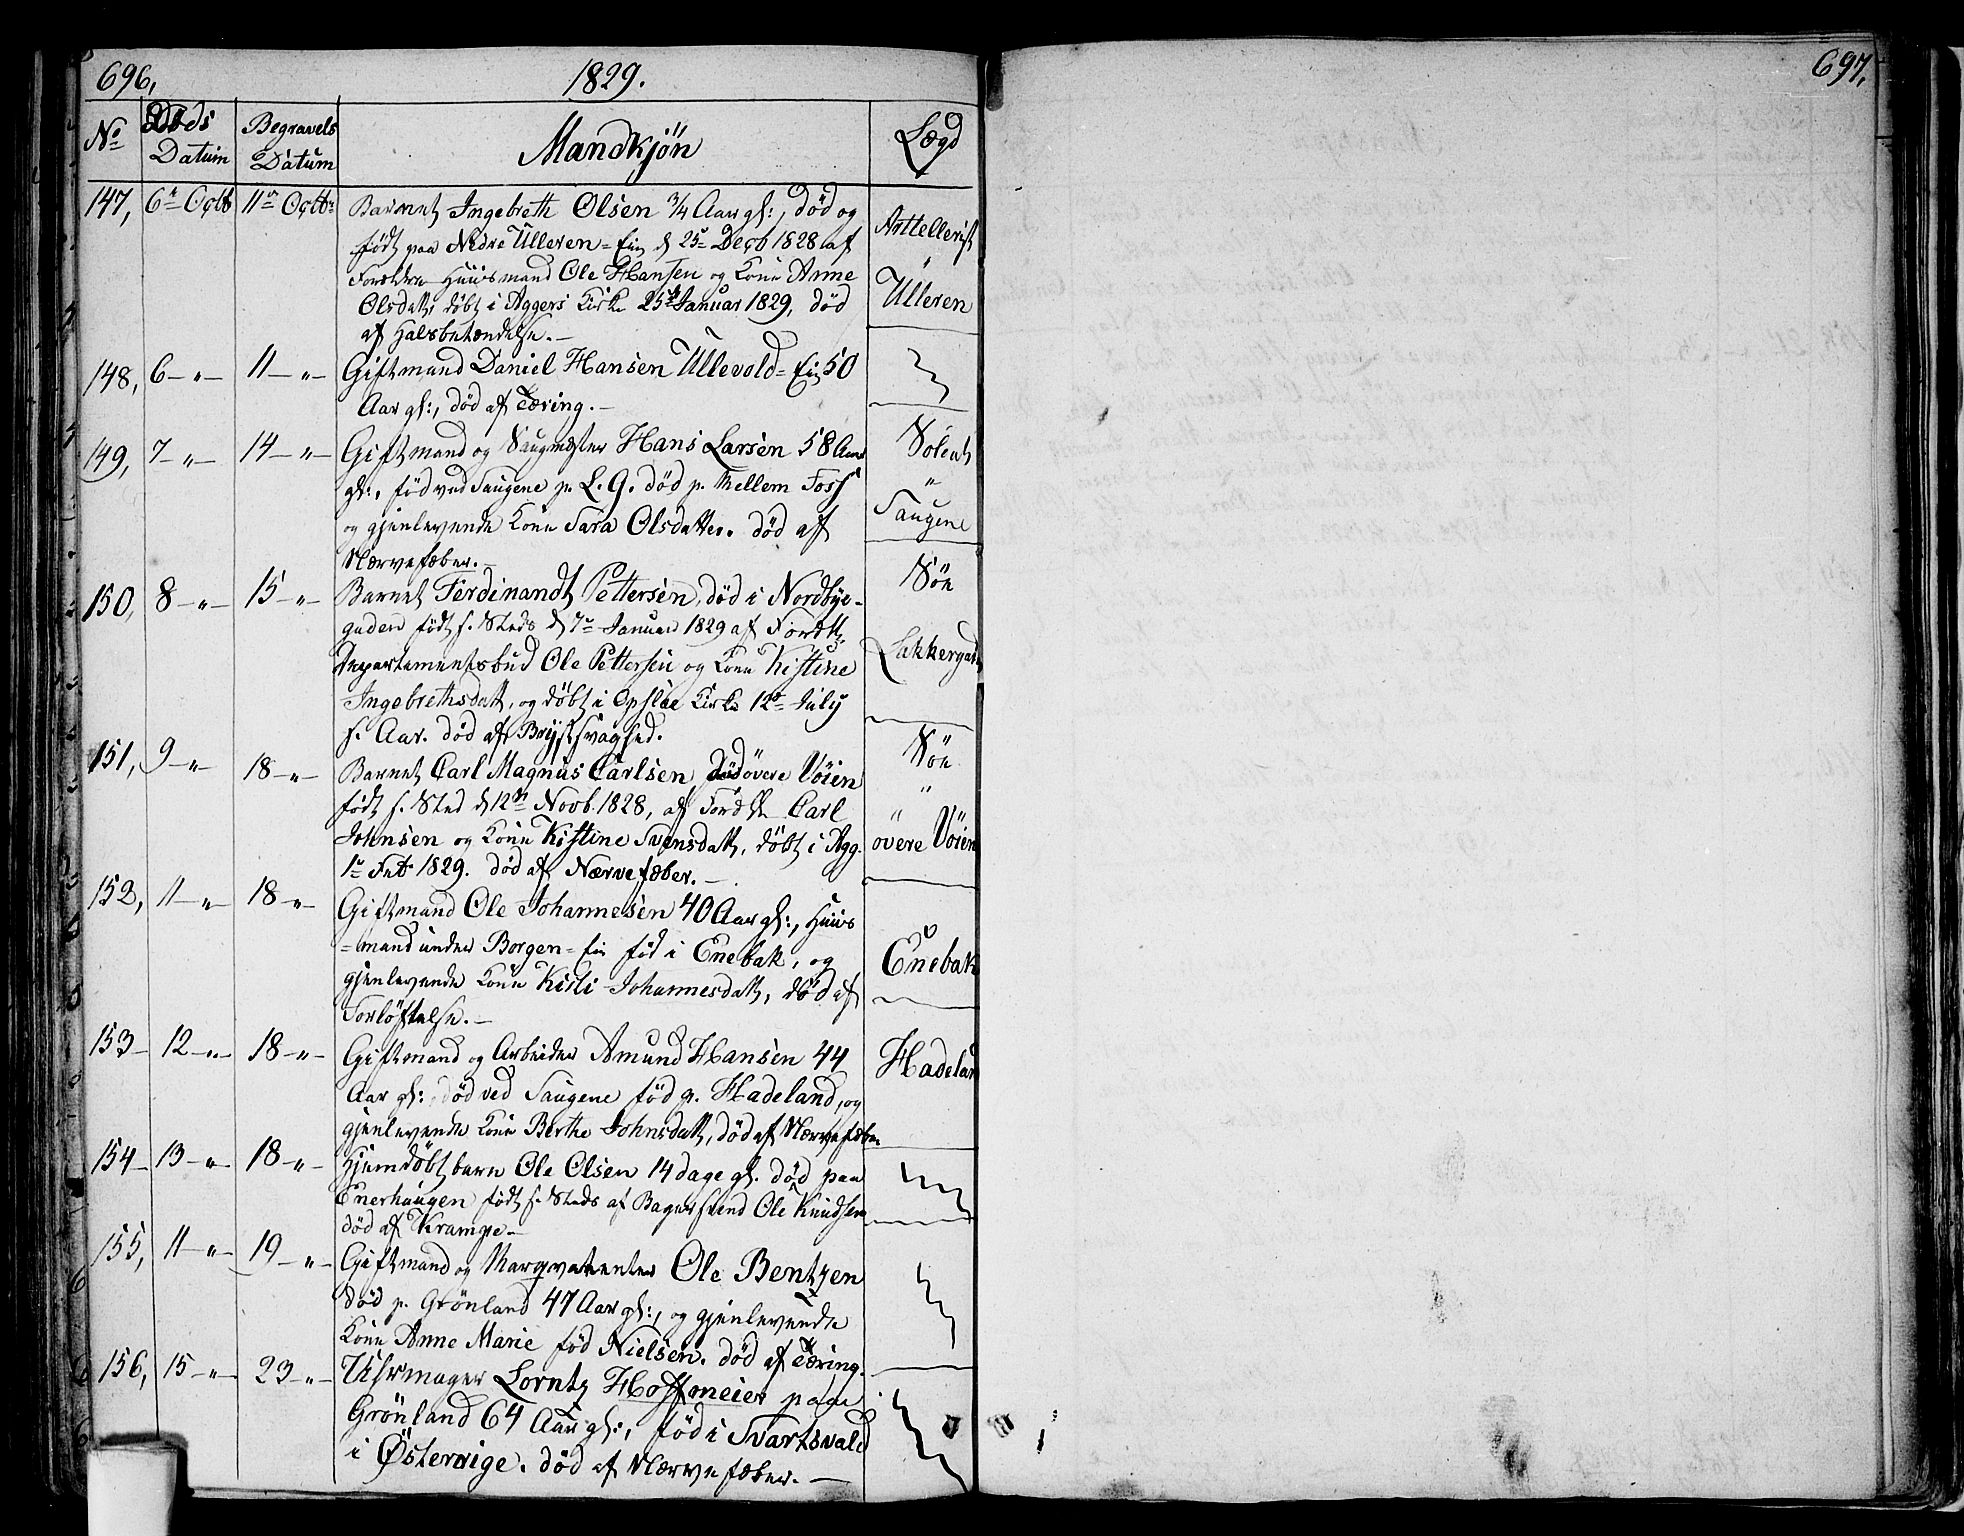 696,
1829.
697,
No
Döds Datum
Begravels Datum
Mandkjön
Lægd
147, 6te Octb 11te Octbr
Barnet Ingebreth Olsen 3/4 Aar gl:, död og
födt paa Nedre Ulleren-Eie d 25de Decb 1828 af
Forældre Huusmand Ole Hansen og Kone Anne
Olsdatt, döbt i Aggers Kirke 25de Januar 1829, död
af Halsbetændelse.—
Arttellerist
"
Ulleren
148, 6—"— 11—"—
Giftmand Daniel Hansen Ullevold-Eie 50
Aar gl:, död af Tæring.—
149, 7—"— 14—"—
Giftmand og Saugmester Hans Larsen 58 Aar
gl:, föd ved Saugene p. L. G. död p. Mellem Foss
og gjenlevende Kone Sara Olsdatter. död aff
Nærvefæber.—
Solent
"
Saugene
150, 8—"— 15—"—
Barnet Ferdinandt Pettersen, död i Nordbye-
gaden födt s. Steds d 7de Januar 1829 af Forældre
Departementsbud Ole Pettersen og Kone Kistine
Ingebrethsdatt, og döbt i Opsloe Kirke 12te July
s. Aar. död af Brystsvaghed.
Sön
Lakkergad
151, 9—"— 18—"—
Barnet Carl Magnus Carlsen död övere Vöien
födt s. Sted d 12te Novb. 1828, af Forældre Carl
Johnsen og Kone Kistine Svensdatt, döbt i Agg.
1te Feb 1829. död af Nærvefæber.—
Sön
"
"
overe Vöien
152, 11—"— 18—"—
Giftmand Ole Johannesen 40 Aar gl:, Huus
=mand under Borgen-Eie föd i Enebak, og
gjenlevende Kone Kisti Johannesdatt, död af
Forlöftelse.—
Enebak
153— 12—"— 18—"—
Giftmand og Arbeider Amund Hansen 44
Aar gl: död ved Saugene föd p. Hadeland, og
gjenlevende Kone Berthe Johnsdatt, död af Nærvefæber
Hadelan
154— 13—"— 18—"—
Hjemdöbt barn Ole Olsen 14 dage gl. död paa
Enerhaugen födt s. Steds af Bagersvend Ole Knudsen
död af Krampe—
155, 11—"— 19—"—
Giftmand og Marqvatenter Ole Bentzen
död p. Grönland 47 Aar gl:, og gjenlevende
Kone Anne Marie föd Nielsen. död af Tæring.
156, 15—"— 23—"—
Uhrmager Lorntz Hoffmeier paa
Grönland 64 Aar gl:, föd i Svartsvald
i Österrige. död af Nærvefæber.—